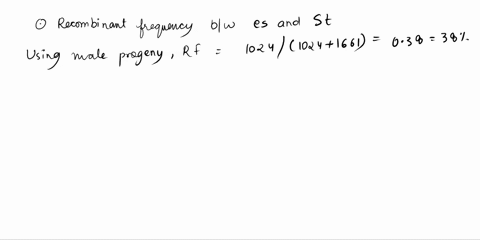 ⊙ Recombinant frequency b/w es and St
Using male progeny, Rf = 1024/(1024+1661) = 0.38 = 38%.